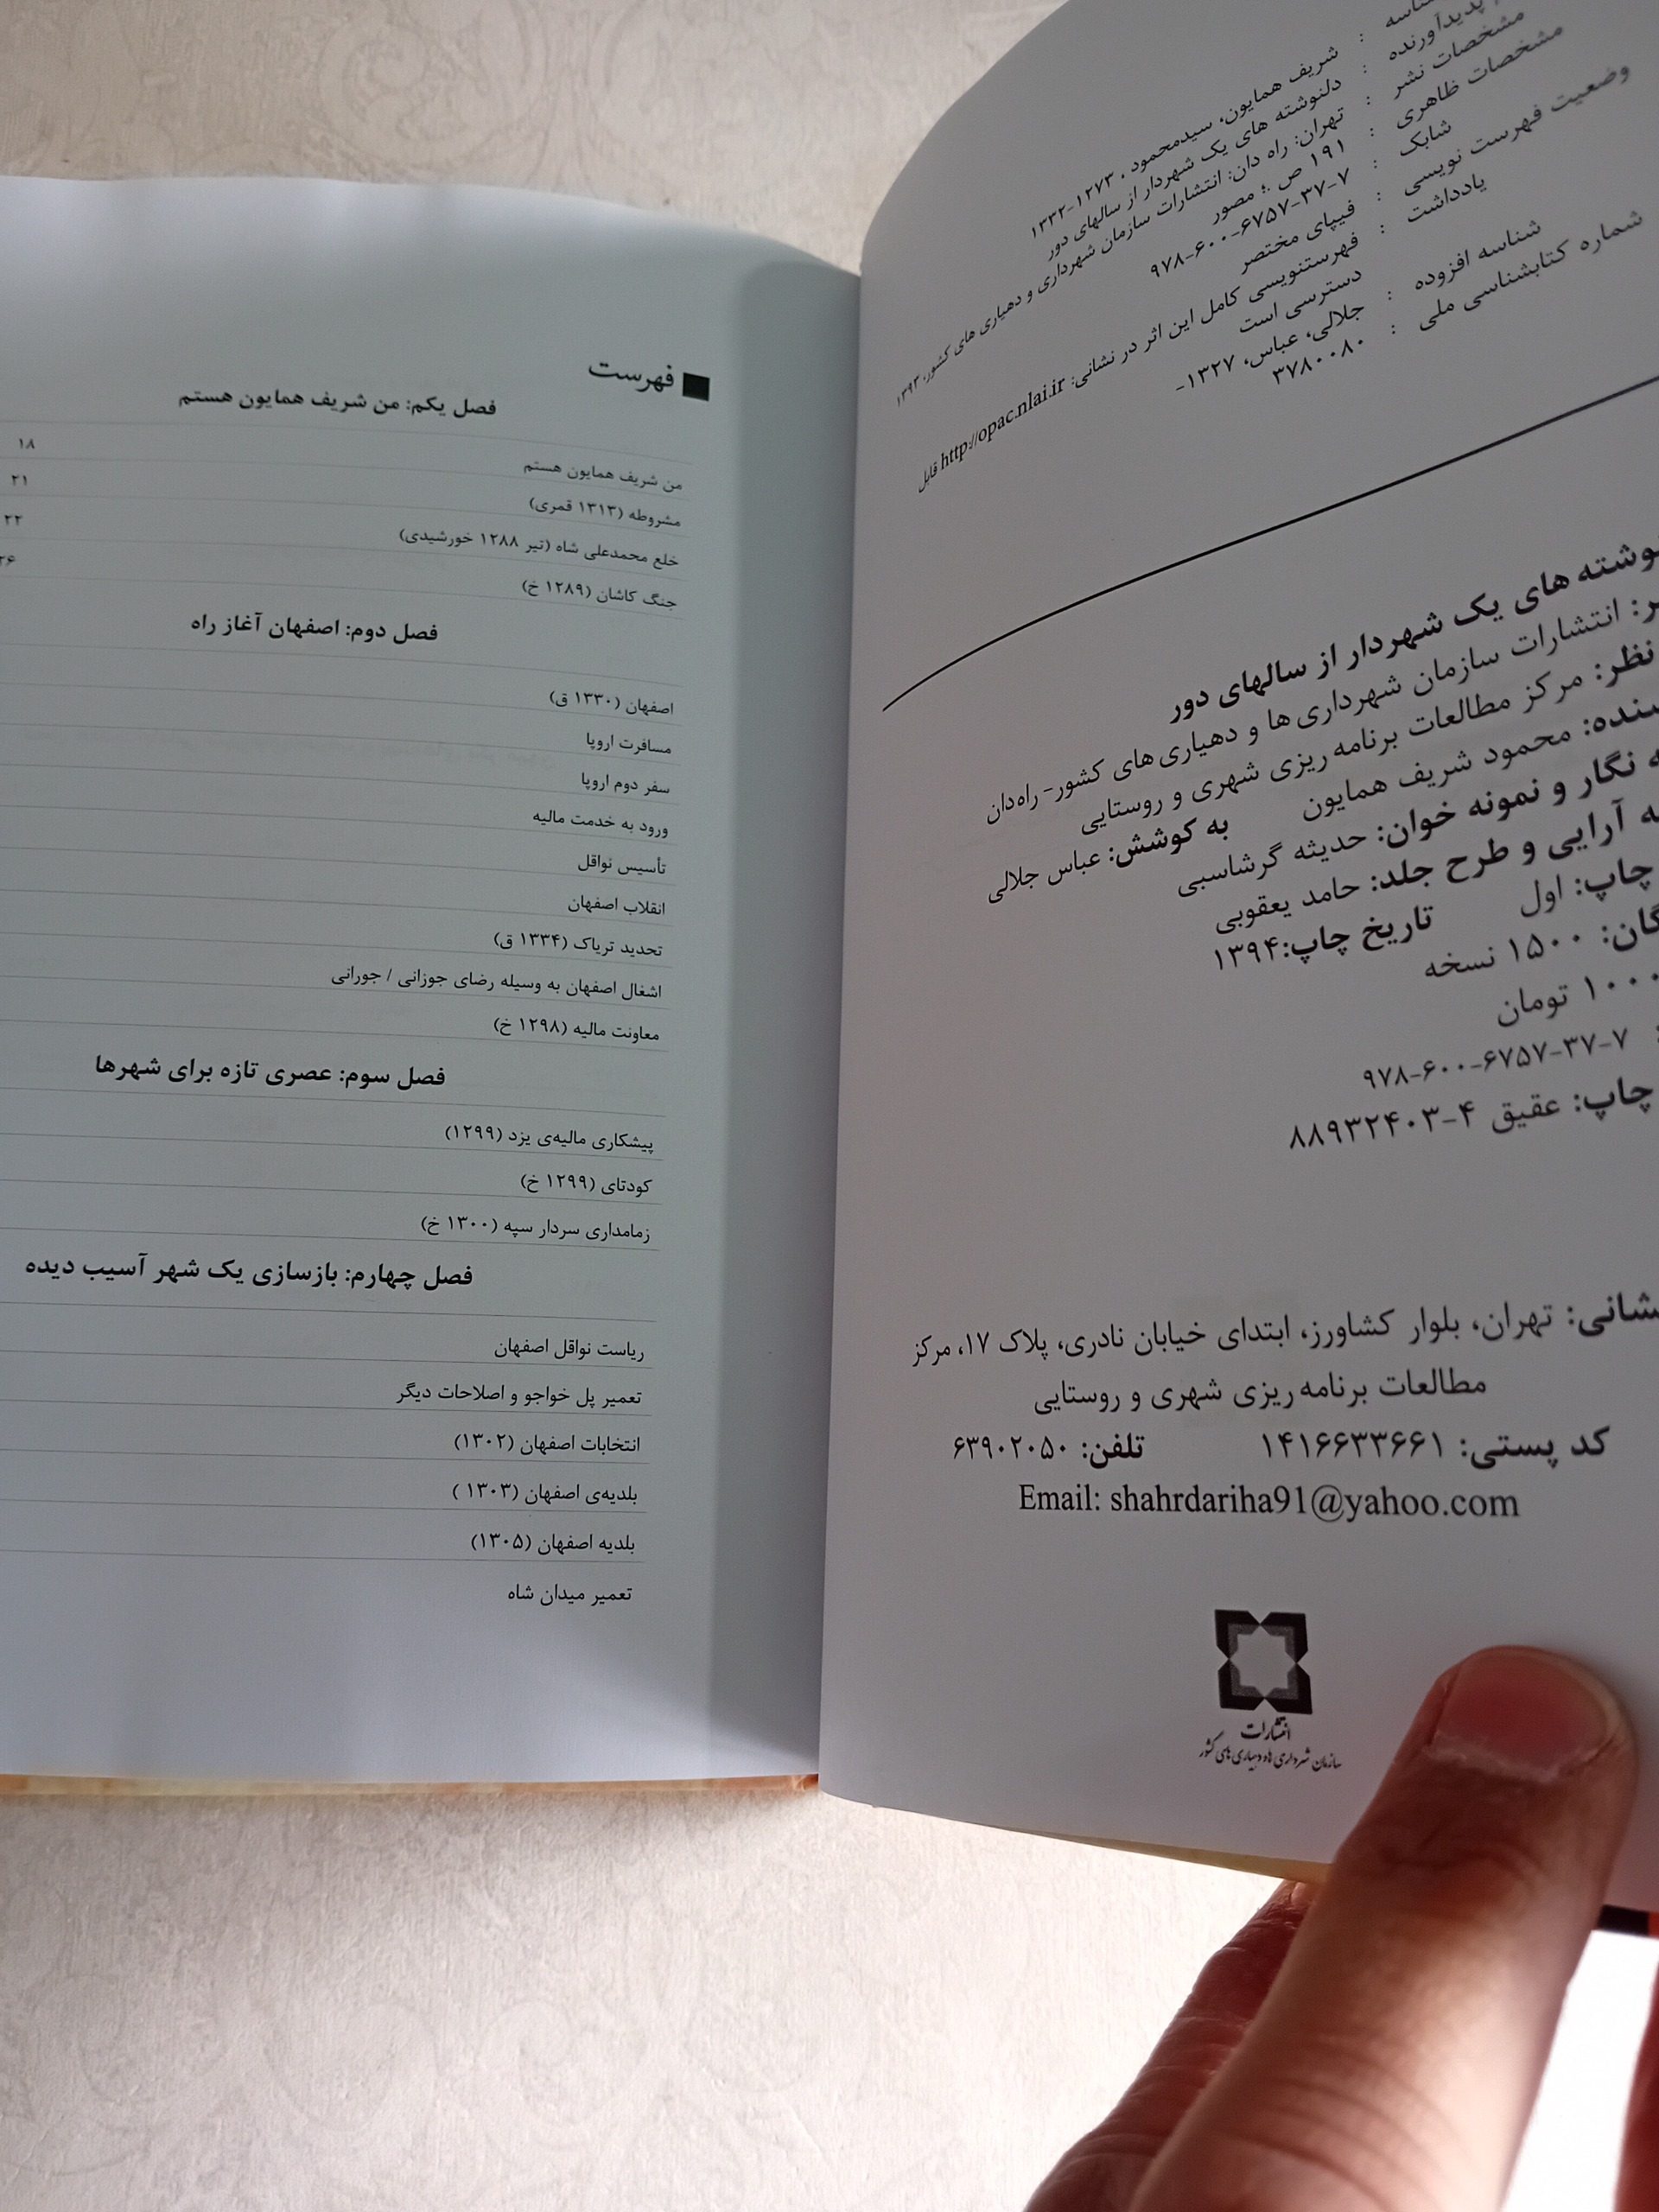 شناسه :
پدیدآورنده : شریف همایون، سیدمحمود ، ۱۲۷۳-۱۳۳۲
دلنوشته های یک شهردار از سالهای دور
مشخصات نشر : تهران: راه دان: انتشارات سازمان شهرداری و دهیاری های کشور، ۱۳۹۳
مشخصات ظاهری : ۱۹۱ ص .؛ مصور
شابک : ۹۷۸-۶۰۰-۶۷۵۷-۳۷-۷
وضعیت فهرست نویسی : فیپای مختصر
یادداشت : فهرستنویسی کامل این اثر در نشانی: http://opac.nlai.ir قابل
دسترسی است
شناسه افزوده : جلالی، عباس، ۱۳۲۷-
شماره کتابشناسی ملی : ۳۷۸۰۰۸۰
نوشته های یک شهردار از سالهای دور
انتشارات سازمان شهرداری ها و دهیاری های کشور- راه‌دان
نظر: مرکز مطالعات برنامه ریزی شهری و روستایی
محمود شریف همایون به کوشش: عباس جلالی
نگار و نمونه خوان: حدیثه گرشاسبی
آرایی و طرح جلد: حامد یعقوبی
چاپ: اول تاریخ چاپ: ۱۳۹۴
۱۵۰۰ نسخه
تومان
۹۷۸-۶۰۰-۶۷۵۷-۳۷-۷
چاپ: عقیق ۴-۸۸۹۳۲۴۰۳
نشانی: تهران، بلوار کشاورز، ابتدای خیابان نادری، پلاک ۱۷، مرکز
مطالعات برنامه ریزی شهری و روستایی
کد پستی: ۱۴۱۶۶۳۳۶۶۱ تلفن: ۶۳۹۰۲۰۵۰
Email: shahrdariha91@yahoo.com
انتشارات
سازمان شهرداری ها و دهیاری های کشور
فهرست
فصل یکم: من شریف همایون هستم
من شریف همایون هستم ۱۸
مشروطه (۱۳۱۳ قمری) ۲۱
خلع محمدعلی شاه (تیر ۱۲۸۸ خورشیدی) ۲۲
جنگ کاشان (۱۲۸۹ خ) ۲۶
فصل دوم: اصفهان آغاز راه
اصفهان (۱۳۳۰ ق)
مسافرت اروپا
سفر دوم اروپا
ورود به خدمت مالیه
تأسیس نواقل
انقلاب اصفهان
تحدید تریاک (۱۳۳۴ ق)
اشغال اصفهان به وسیله رضای جوزانی / جورانی
معاونت مالیه (۱۲۹۸ خ)
فصل سوم: عصری تازه برای شهرها
پیشکاری مالیه‌ی یزد (۱۲۹۹)
کودتای (۱۲۹۹ خ)
زمامداری سردار سپه (۱۳۰۰ خ)
فصل چهارم: بازسازی یک شهر آسیب دیده
ریاست نواقل اصفهان
تعمیر پل خواجو و اصلاحات دیگر
انتخابات اصفهان (۱۳۰۲)
بلدیه‌ی اصفهان (۱۳۰۳ )
بلدیه اصفهان (۱۳۰۵)
تعمیر میدان شاه